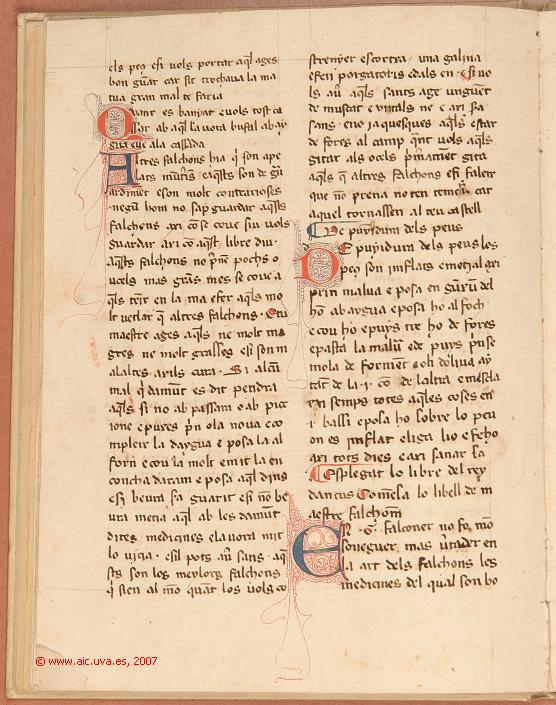 els peus e si vols portar aq̃l ages
bon guar car sit trobaua la ma
tua gran mal te faria
Quant es banyat e uols tost ca
ssar ab aq̃l la uora bufal ab ay
gua e ue a la cassada
Altres falchons hia q̃ son ape
lats
ardiment e son molt contrarioses
negũ hom no sap guardar aq̃sts
falchons axi co se coue si u vols
guardar axi co aq̃st libre diu
aq̃sts falchons no p̃nẽ pochs o
ucels mas grãs mes se coue a
q̃ls tenir en la ma e fer aq̃ls mo
lt uetlar q̃ altres falchons. E tu
maestre ages aq̃ls ne molt ma
gres ne molt grasses e si son m
alaltes axils cura. Si alcũ
mal q̃ damũt es dit pendra
aq̃ls si no ab passam o ab pice
ione e pures pin ola noua e co
mpleix la daygua e posa la al
forn e cou la molt e mit la en
concha daram e posa aq̃l dins
e si beura sa guarit e si nõ be
ura metia aq̃l ab les damũt
dites medicines e la uora mit
lo uiya. e sil pots aũ sans. aq̃
sts son les meylors falchons
q̃ sien al mõ quat los uols co
strenyer escortxa una galina
e fen porgatoris e dals en. e si uo
ls aũ aq̃ls sants age unguẽt
de mustat e untals ne e axi sa
sans. e no ja quesques aq̃ls estar
de fores al camp q̃nt uols aq̃ls
gitar als ocels p̃mament gita
aq̃ls q̃ altres falchons e si faleix
que nõ prena no ten temey car
aquel tornassen al teu castell
De puyidura dels peus
De puyidura dels peus les
peus son inflats e metjal axi
prin malua e posa en gurũ del
hõ ab aygua e posa ho al foch
e cou ho e puys tir ho de fores
e pasta la malũ e de puys p̃n se
mola de forment e oli doliua ay
tãt de la .i. co de laltra e mescla
en semps totes aq̃lles coses en
i bassi e posa ho sobre lo peu
on es inflat e liga lio e fe ho
axi tots dies e axi sanar sa
Desplegat lo libre del rey
dancus Comẽsa lo libell de m
aestre falchom
EN .G. falconer no fo mõ
soneguer mas ũtader en
la art dels falchons les
medicines del qual son bo
© www.aic.uva.es, 2007